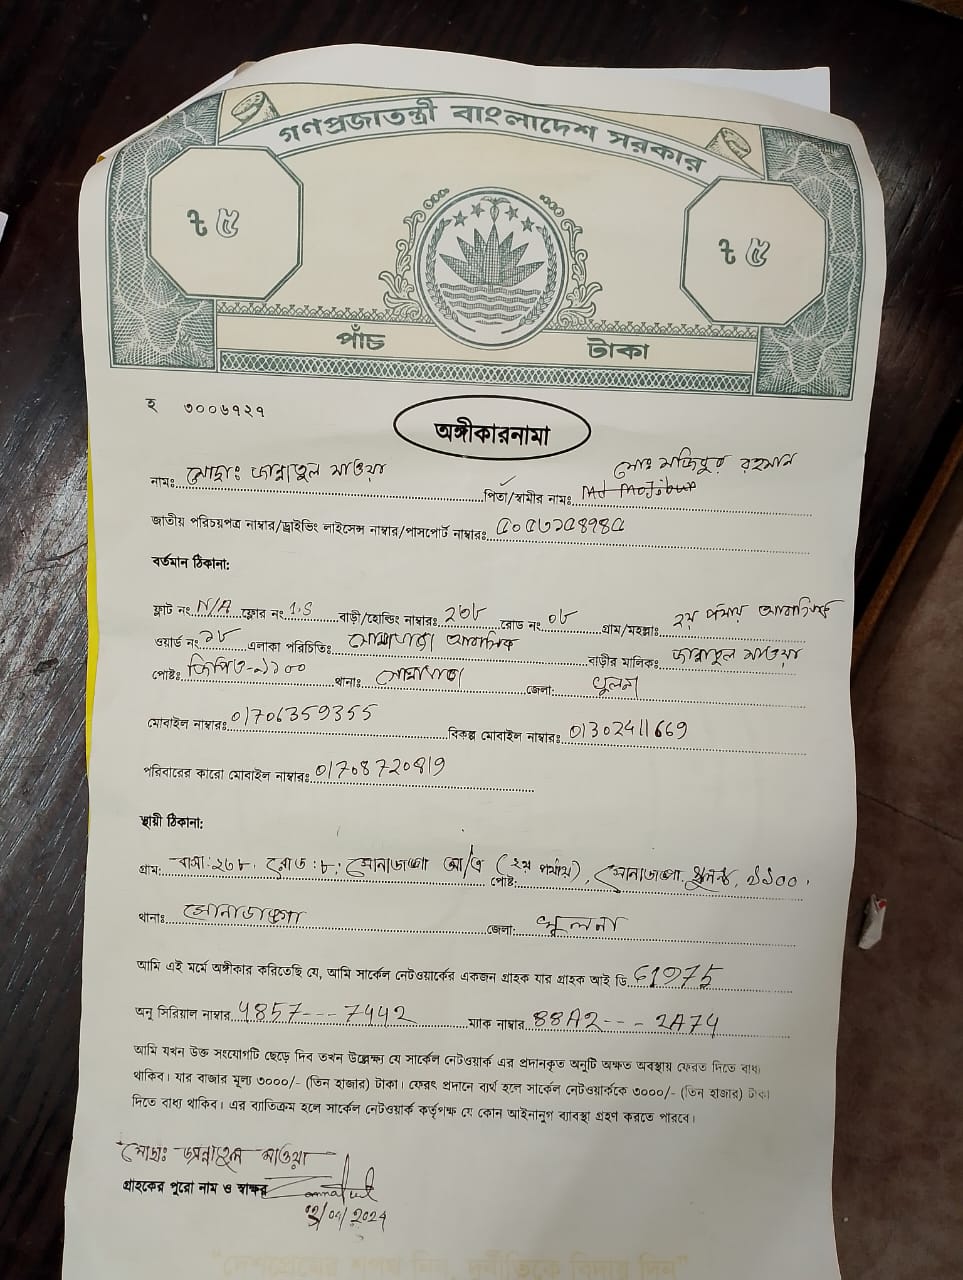 গণপ্রজাতন্ত্রী বাংলাদেশ সরকার
৳ ৫ ৳ ৫
পাঁচ টাকা
হ ৩০০৬৭২৭
অঙ্গীকারনামা
নামঃ মোছাঃ জান্নাতুল মাওয়া পিতা/স্বামীর নামঃ মোঃ মজিবুর রহমান
জাতীয় পরিচয়পত্র নাম্বার/ড্রাইভিং লাইসেন্স নাম্বার/পাসপোর্ট নাম্বারঃ
বর্তমান ঠিকানা:
ফ্লাট নং N/A ফ্লোর নং 1.S বাড়ী/হোল্ডিং নাম্বারঃ ২৬৮ রোড নং ০৮ গ্রাম/মহল্লাঃ ২য় পর্যায় আবাসিক
ওয়ার্ড নং ১৮ এলাকা পরিচিতিঃ সোনাডাঙ্গা আবাসিক বাড়ীর মালিকঃ জান্নাতুল মাওয়া
পোষ্টঃ জিপিও-৯১০০ থানাঃ সোনাডাঙ্গা জেলা: খুলনা
মোবাইল নাম্বারঃ 01706359355 বিকল্প মোবাইল নাম্বারঃ 01302411669
পরিবারের কারো মোবাইল নাম্বারঃ 01708720819
স্থায়ী ঠিকানা:
গ্রাম: বাসা: ২৬৮, রোড: ৮, সোনাডাঙ্গা আ/এ (২য় পর্যায়), পোষ্ট: সোনাডাঙ্গা, খুলনা, ৯১০০.
থানাঃ সোনাডাঙ্গা জেলা: খুলনা
আমি এই মর্মে অঙ্গীকার করিতেছি যে, আমি সার্কেল নেটওয়ার্কের একজন গ্রাহক যার গ্রাহক আই ডি 61975
অনু সিরিয়াল নাম্বার 4857---7442 ম্যাক নাম্বার 88A2---2A74
আমি যখন উক্ত সংযোগটি ছেড়ে দিব তখন উল্লেক্ষ্য যে সার্কেল নেটওয়ার্ক এর প্রদানকৃত অনুটি অক্ষত অবস্থায় ফেরত দিতে বাধ্য
থাকিব। যার বাজার মূল্য ৩০০০/- (তিন হাজার) টাকা। ফেরৎ প্রদানে ব্যর্থ হলে সার্কেল নেটওয়ার্ককে ৩০০০/- (তিন হাজার) টাকা
দিতে বাধ্য থাকিব। এর ব্যতিক্রম হলে সার্কেল নেটওয়ার্ক কর্তৃপক্ষ যে কোন আইনানুগ ব্যাবস্থা গ্রহণ করতে পারবে।
মোছাঃ জান্নাতুল মাওয়া
গ্রাহকের পুরো নাম ও স্বাক্ষর
"দেশপ্রেমের শপথ নিন, দুর্নীতিকে বিদায় দিন"